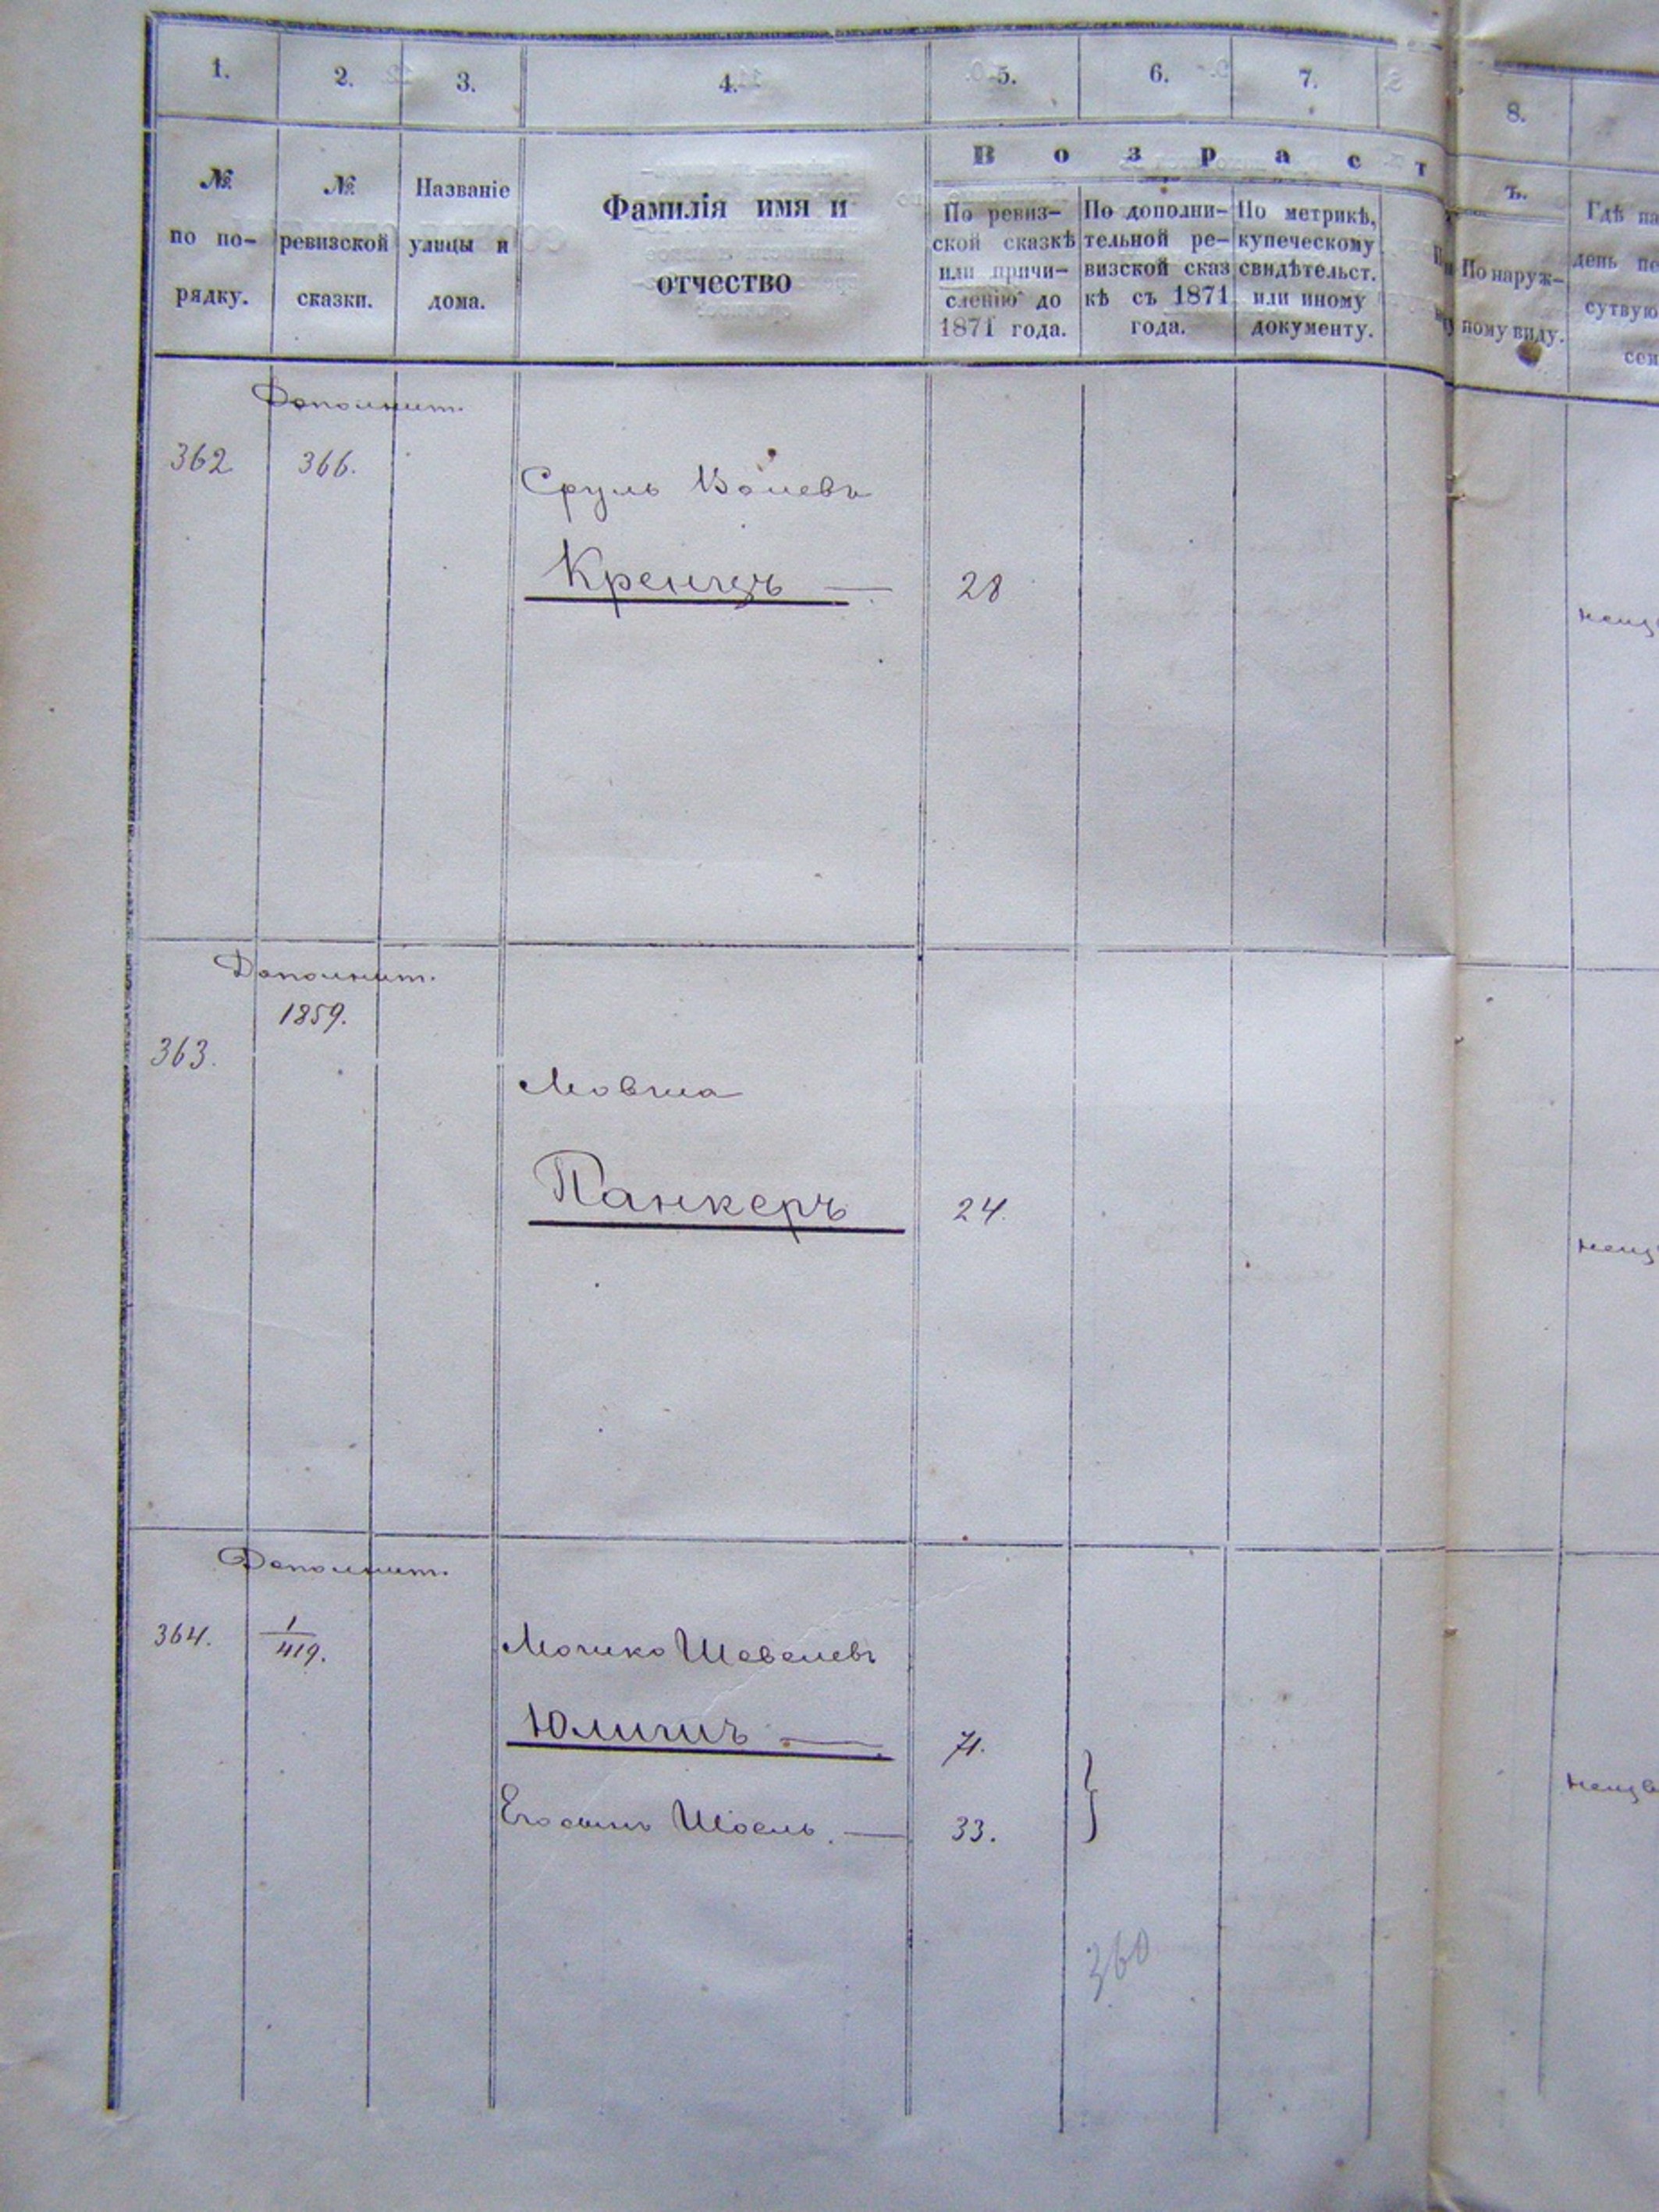 1.
2.
3.
4.
5.
6.
7.
8.
№ по по-рядку.
№ ревизской сказки.
Названіе улицы и дома.
Фамилія имя и отчество
Возраст
ъ.
По ревиз-
ской сказкѣ
или причи-
сленію до
1871 года.
По дополни-
тельной ре-
визской сказ
кѣ съ 1871
года.
По метрикѣ,
купеческому
свидѣтельст.
или иному
документу.
По наруж-
ному виду.
Гдѣ на
день пе
сутвую
сем
Дополнит.
362 366.
Сруль Волевъ
Кренцъ — 28
неиз
Дополнит.
1859.
363.
Мовша
Панкеръ 24.
неиз
Дополнит.
364. 1/419.
Мошко Шевелевъ
Юлишъ — 71.
Его сынъ Шоель. — 33.
неизв
360